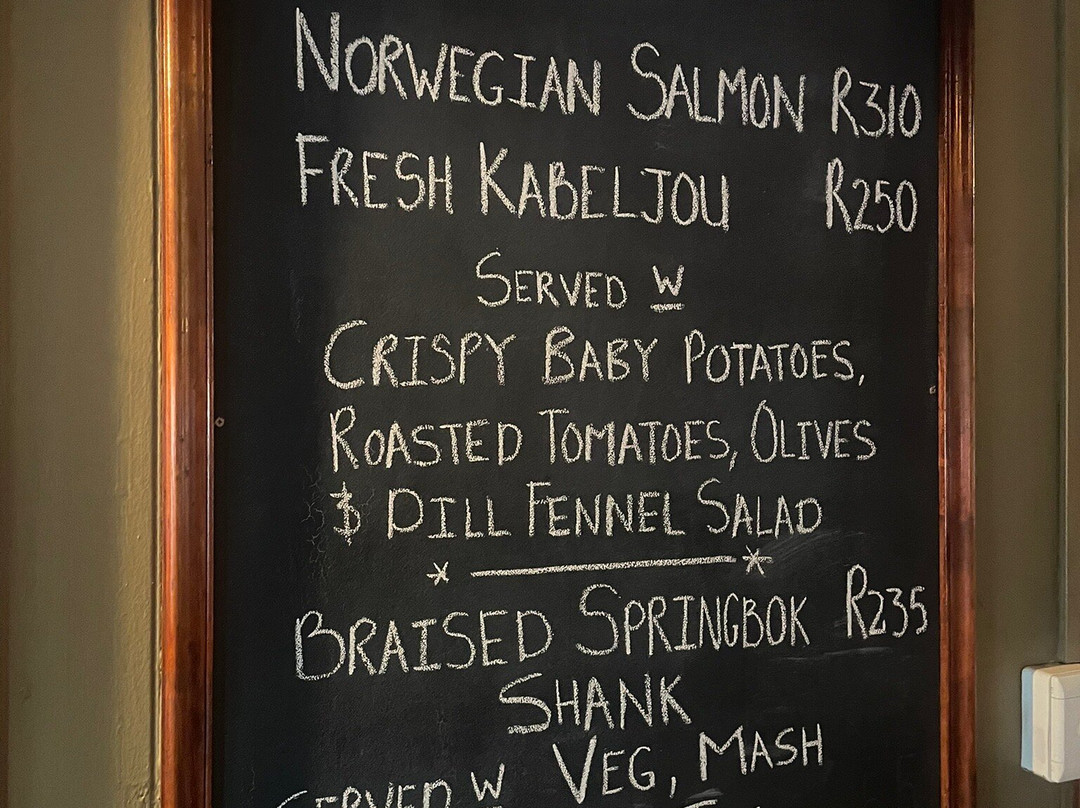 NORWEGIAN SALMON R310
FRESH KABELJOU R250
SERVED W
CRISPY BABY POTATOES,
ROASTED TOMATOES, OLIVES
& DILL FENNEL SALAD
BRAISED SPRINGBOK R235
SHANK
SERVED W VEG, MASH